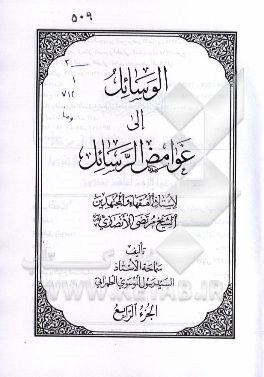 ۵۰۹
۲
۱
۷۱۲
الوسائل
إلى
غوامض الرسائل
لأستاذ الفقهاء والمجتهدين
الشيخ مرتضى الأنصاري
تأليف
سماحة الأستاذ
السيد رسول الموسوي الطهراني
الجزء الرابع